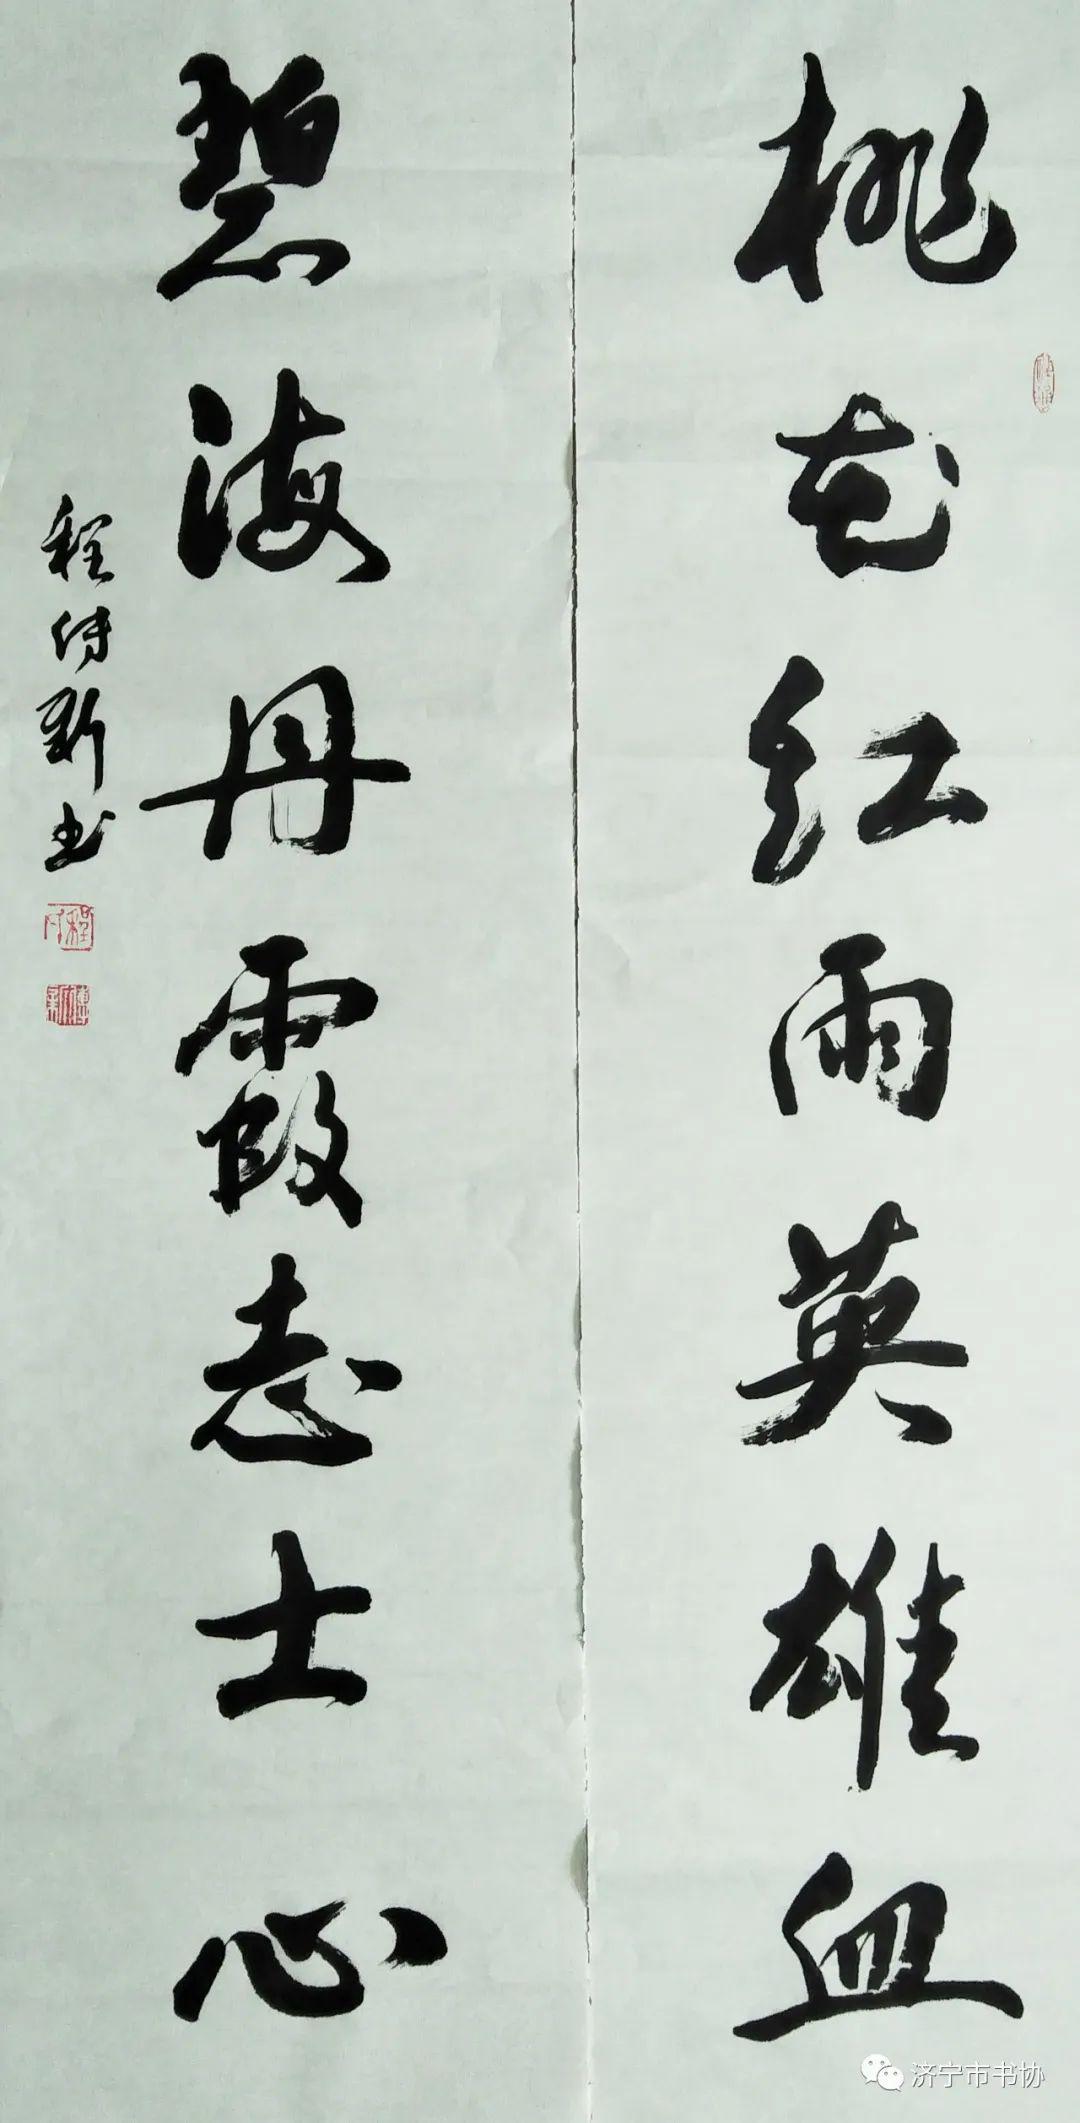 桃花红雨英雄血
碧海丹霞志士心
程传新书
济宁市书协